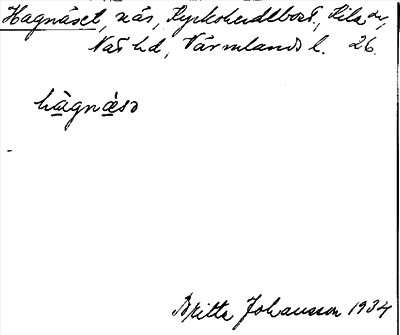 Hagnäset, näs, Kyrkoherdebost., Kila sn,
Näs hd, Värmlands l. 26.
hàgnä̀sə
Britta Johansson 1934